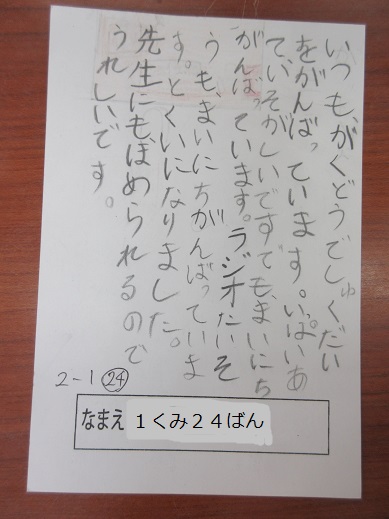 いつも、がくどうでしゅくだい
をがんばっています。いっぱいあ
て、いそがしいですでも、まいにち
がんばっています。ラジオたいそ
うも、まいにちがんばっていま
す。とくいになりました。
先生にもほめられるので
うれしいです。
2-1 ㉔
なまえ 1くみ24ばん